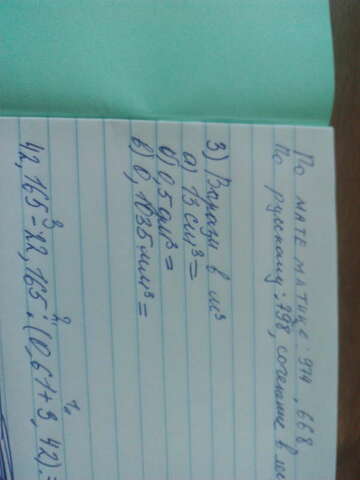 По математике: 914, 668
По русскому: 798, сочетание в
3) Вырази в м³
а) 13 см³ =
б) 0,5 дм³ =
в) 0,1035 мм³ =
3 2 1
42,165 - 22,165 : (0,61 + 3,42) =